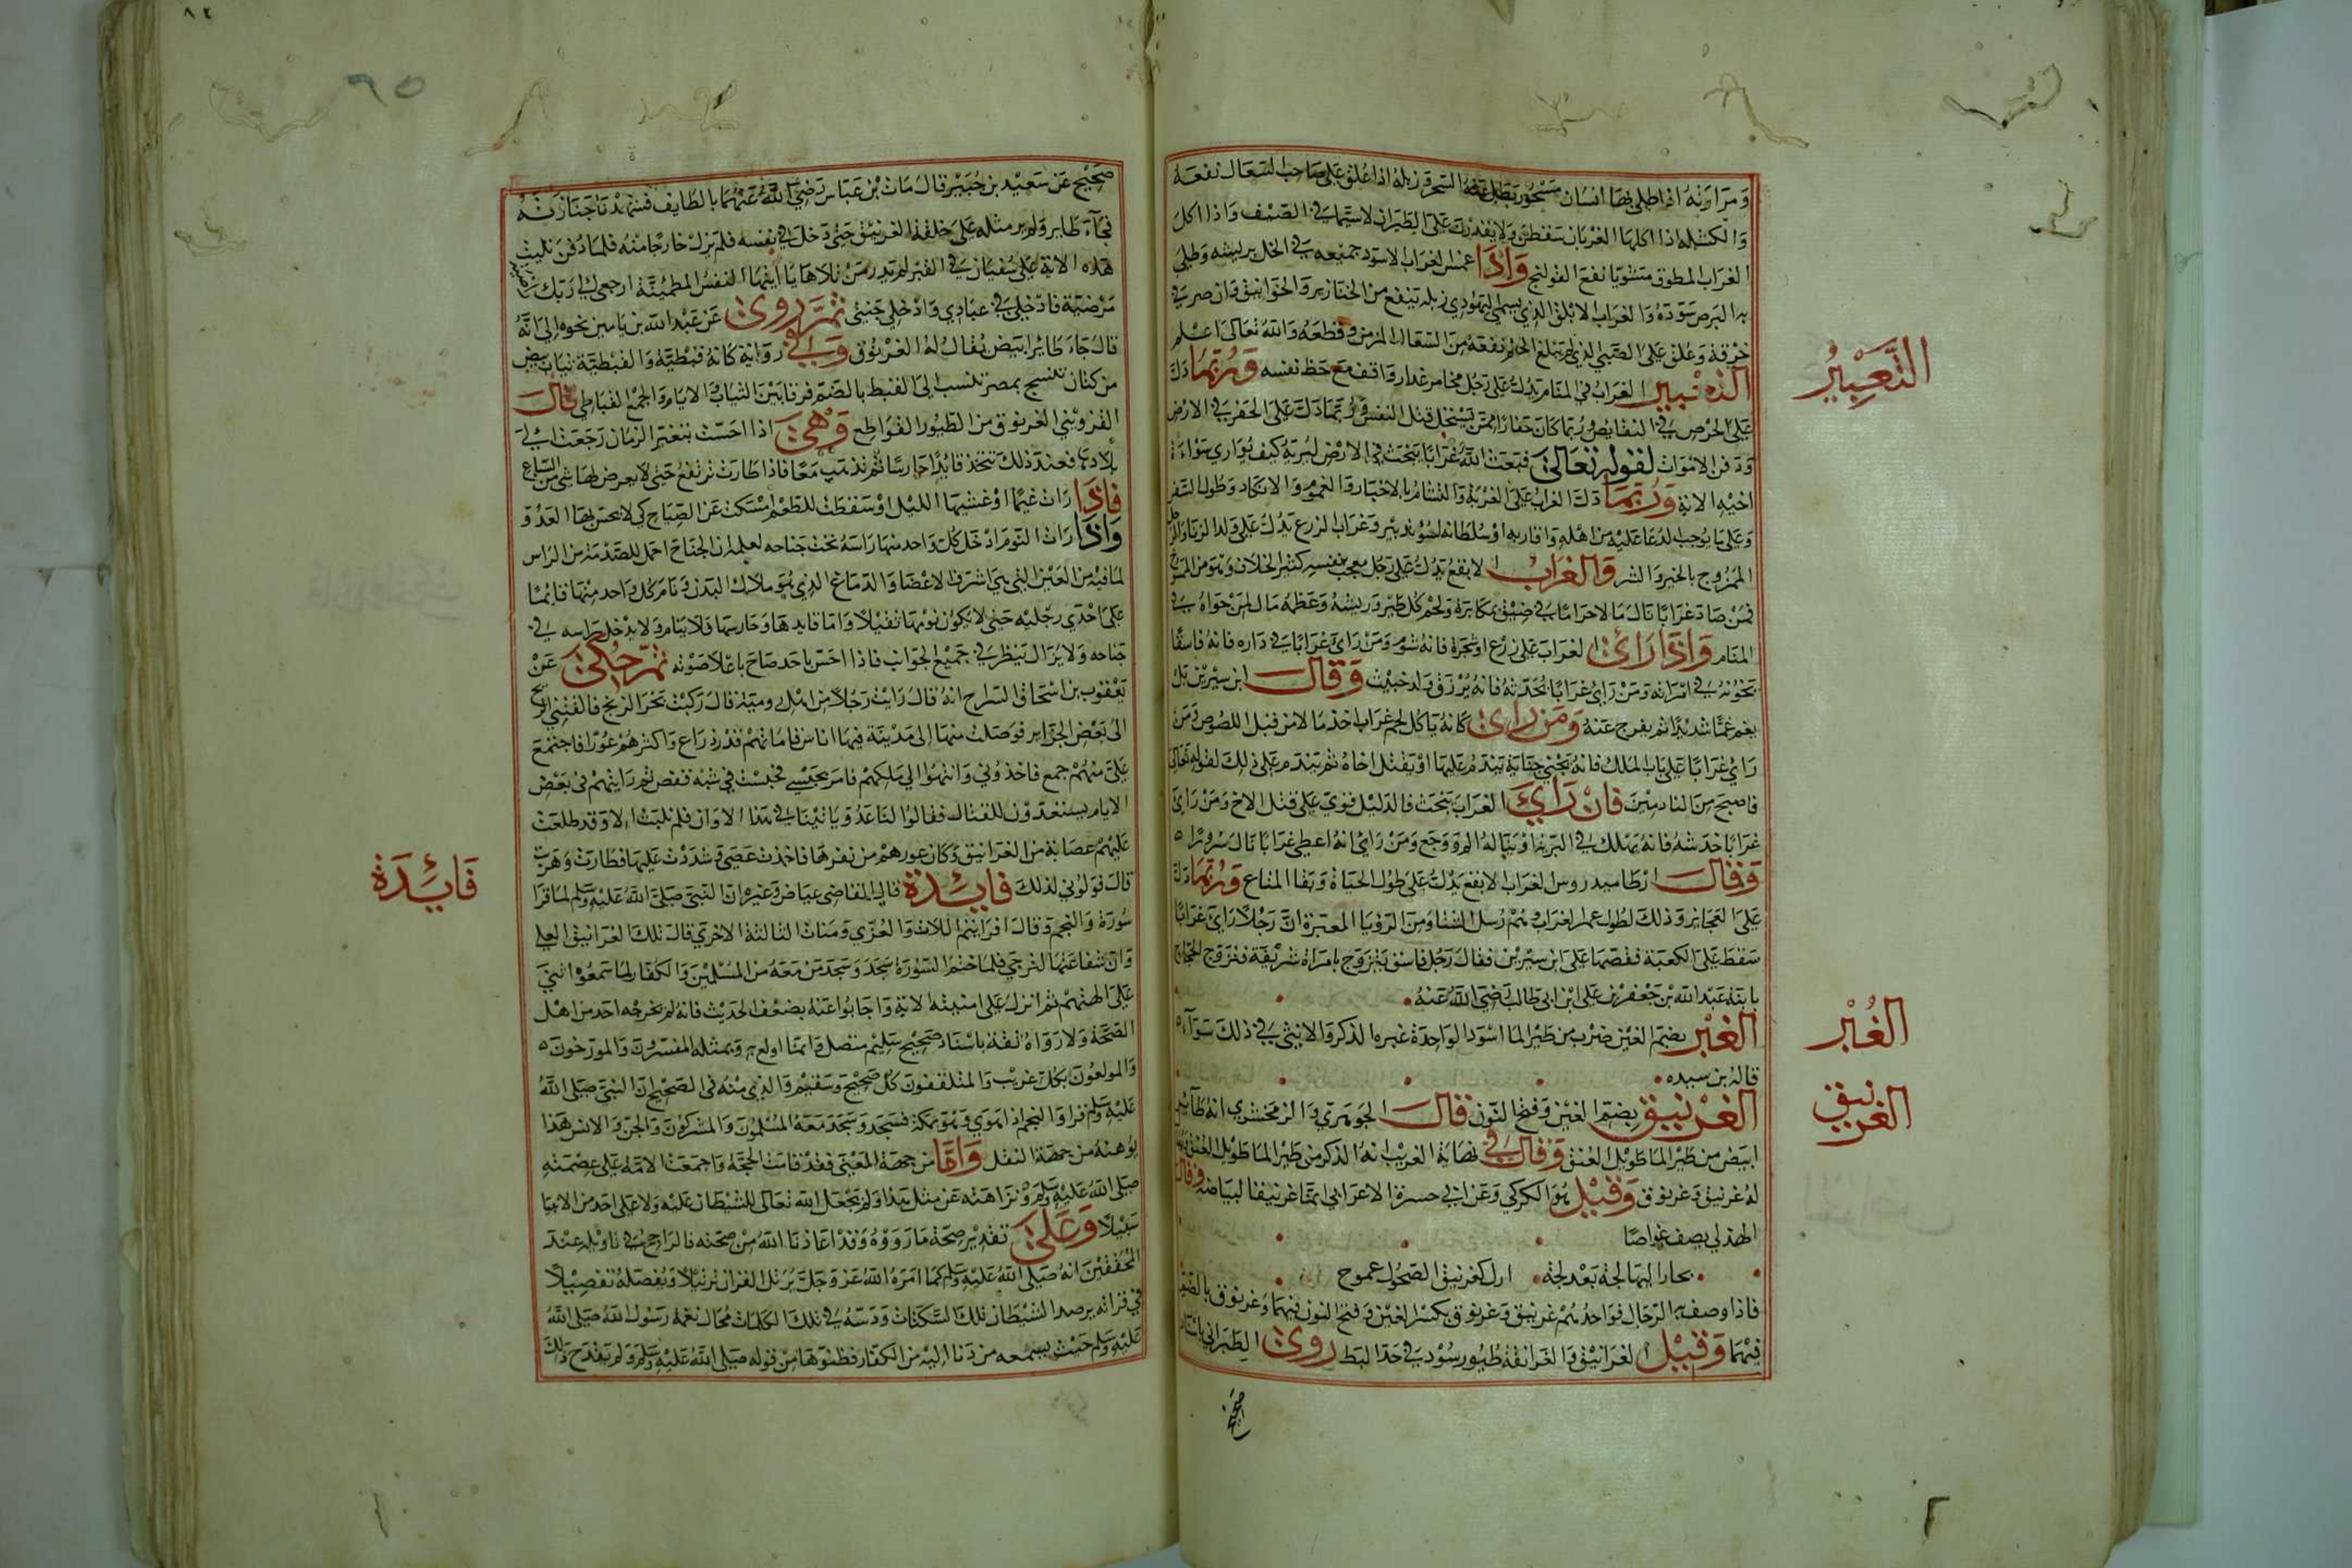 ومرارته اذا طلى بها انسان مسحور بطل عنه السحر وزبله اذا علق على صاحب السعال نفعه
والكشيله اذا اكلها الغربان سقطن ولا يقدرن على الطيران لاسيما في الصيف واذا اكل
الغراب المطوق مشويا نفع القولنج واذا غمس الغراب الاسود جميعه في الخل بريشه وطلي
به البرص سوده والغراب الابلق الذي يسمى اليهودي زبله ينفع من الخنازير والخوانيق وان صر في
خرقة وعلق على الصبي الذي لم يبلغ الحلم نفعه من السعال المزمن وقطعه والله تعالى اعلم
الغراب في المنام يدل على رجل مخامر غدار واقف مع حظ نفسه وربما دل
على الحرص في النقايص وربما كان حفارا ممن يستحل قتل النفس وربما دل على الحفر في الارض
ودفن الاموات لقوله تعالى فبعث الله غرابا يبحث في الارض ليريه كيف يواري سواة
اخيه الاية وربما دل الغراب على الغربة والتشام بالاخبار والغموم والانكاد وطول السفر
وعلى ما يوجب الدعا عليه من اهله واقاربه او سلطانه لسوء تدبير وغراب الزرع يدل على ولد الزنا والرجل
الممزوج بالخير والشر والغراب الابقع يدل على رجل معجب بنفسه كثير الخلاف وهو من الممسوخ
فمن صاد غرابا نال مالا حراما في ضيق بمكابرة ولحم كل طير وريشه وعظمه مال لمن حواه في
المنام واذا راى الغراب على زرع او شجرة فانه شوم ومن راى غرابا في داره فانه فاسقا
يخونه في امراته ومن راى غرابا يحدثه فانه يرزق ولد خبيث وقال ابن سيرين بل
يغم غما شديدا ثم يفرج عنه ومن راى كانه ياكل لحم غراب اخذ مالا من قبل اللصوص ومن
راى غرابا على باب الملك فانه يجني جناية يندم عليها او يقتل اخاه ثم يندم على ذلك لقوله تعالى
فاصبح من النادمين فان راى الغراب يبحث فالدليل قوي على قتل الاخ ومن راى
غرابا خدشه فانه يهلك في البرية او يناله الم ووجع ومن راى انه اعطي غرابا نال سرورا
وقال ارطاميدروس الغراب الابقع يدل على طول الحياة وبقا المتاع وربما دل
على العجايز وذلك لطول عمر الغراب وهم رسل الشتا ومن الرؤيا المعتبرة ان رجلا راى غرابا
سقط على الكعبة فقصها على ابن سيرين فقال رجل فاسق يتزوج بامراة شريفة فتزوج الحجاج
بابنة عبد الله بن جعفر بن علي ابن ابي طالب رضي الله عنه
الغبر بضم الغين ضرب من طير الما اسود الواحدة غبره الذكر والانثى في ذلك سواء
قاله بن سيده
الغرنيق بضم الغين وفتح النون قال الجوهري والزمخشري انه طاير
ابيض من طير الما طويل العنق وقال في نهاية الغريب انه الذكر من طير الما طويل العنق
له غرنيق وغرنوق وقيل هو الكركي وعن ابي حسرة الاعرابي انما غرنيقا لبياضه وقال
الهذلي يصف غواصا
بحار اليها لجة بعد لجة ازل كغرنيق الضحول عموج
فاذا وصف به الرجال فواحدهم غرنيق وغرنوق بكسر الغين وفتح النون فيهما وغرنوق بالضم
فيهما وقيل الغرانيق والغرانقة طيور سود في حد البط روى الطبراني باسناد
صحيح
التعبير
الغبر
الغرنيق
٦٥
صحيح عن سعيد بن جبير قال مات بن عباس رضي الله عنهما بالطايف فشهدنا جنازته
فجاء طاير ولم ير مثله على خلقة الغرنيق حتى دخل في نفسه فلم نرك خارجا منه فلما دفن تليت
هذه الاية على شفير القبر لم ندر من تلاها يا ايتها النفس المطمئنة ارجعي الى ربك راضية
مرضية فادخلي في عبادي وادخلي جنتي ثم روى عن عبد الله بن يامين نحوه الى انه
قال جاء طاير ابيض يقال له الغرنوق وفي رواية كانه قبطية والقبطية ثياب بيض
من كتان تنسج بمصر تنسب الى القبط بالضم فرقا بين الثياب والانام والجمع القباطي قال
القزويني الغرنوق من الطيور القواطع وهي اذا احست بتغير الزمان رجعت الى
بلادها فعند ذلك تتخذ قايدا حارسا ثم تذهب معا فاذا طارت ترتفع حتى لا يعرض لها شي من السباع
فاذا رات غيما او غشيها الليل او سقطت للطعم امسكت عن الصياح كي لا يحس بها العدو
واذا رات النوم ادخل كل واحد منها راسه تحت جناحه لعلمه ان الجناح احمل للصدمة من الراس
لما فيه من العين التي هي اشرف الاعضا والدماغ الذي هو ملاك البدن وينام كل واحد منها قايما
على احدى رجليه حتى لا يكون نومها ثقيلا واما قايدها وحارسها فلا ينام ولا يدخل راسه في
جناحه ولا يزال ينظر في جميع الجوانب فاذا احس باحد صاح باعلا صوته ثم حكى عن
يعقوب بن اسحاق السراج انه قال رايت رجلا من اهل رومية قال ركبت بحر الزنج فالقتني الريح
الى بعض الجزاير فوصلت منها الى مدينة فيها اناس قاماتهم قدر ذراع واكثرهم عور فاجتمع
علي منهم جمع فاخذوني وانتهوا الى ملكهم فامر بحبسي فحبست في شبه قفص ثم رايتهم في بعض
الايام يستعدون للقتال فقالوا لنا عدو ياتينا في هذا الاوان فلم نلبث الا وقد طلعت
عليهم عصابة من الغرانيق وكان عورهم من نقرها فاخذت عصى وشددت عليها فطارت وهربت
قال فولوني لذلك فايدة قال القاضي عياض وغيره ان النبي صلى الله عليه وسلم لما قرا
سورة والنجم وقال افرايتم اللات والعزى ومناة الثالثة الاخرى قال تلك الغرانيق العلى
وان شفاعتها لترجى فلما ختم السورة سجد وسجد من معه من المسلمين والكفار لما سمعوا اثني
على الهتهم ثم انزل على امنيته الاية واجابوا عنه بضعف الحديث فانه لم يخرجه احد من اهل
الصحة ولا رواه ثقة باسناد صحيح سليم متصل وانما اولع به وبمثله المفسرون والمورخون
والمولعون بكل غريب والمتلقفون كل صحيح وسقيم والذي منه في الصحيح ان النبي صلى الله
عليه وسلم قرا والنجم اذا هوى وهو بمكة فسجد وسجد معه المسلمون والمشركون والجن والانس هذا
توهينه من جهة النقل واما من جهة المعنى فقد قامت الحجة واجمعت الامة على عصمته
صلى الله عليه وسلم ونزاهته عن مثل هذا ولم يجعل الله تعالى للشيطان عليه ولا على احد من الانبيا
سبيلا وعلى تقدير صحة ما رووه وقد اعاذنا الله من صحته فالراجح في تاويله عند
المحققين انه صلى الله عليه وسلم كما امره الله عز وجل يرتل القران ترتيلا ويفصله تفصيلا
في قرانه يرصد الشيطان تلك السكنات ودسه في تلك الكلمات محال نغمة رسول الله صلى الله
عليه وسلم حيث يسمعه من دنا اليه من الكفار فظنوها من قوله صلى الله عليه وسلم ولم يقدح ذلك
فايدة